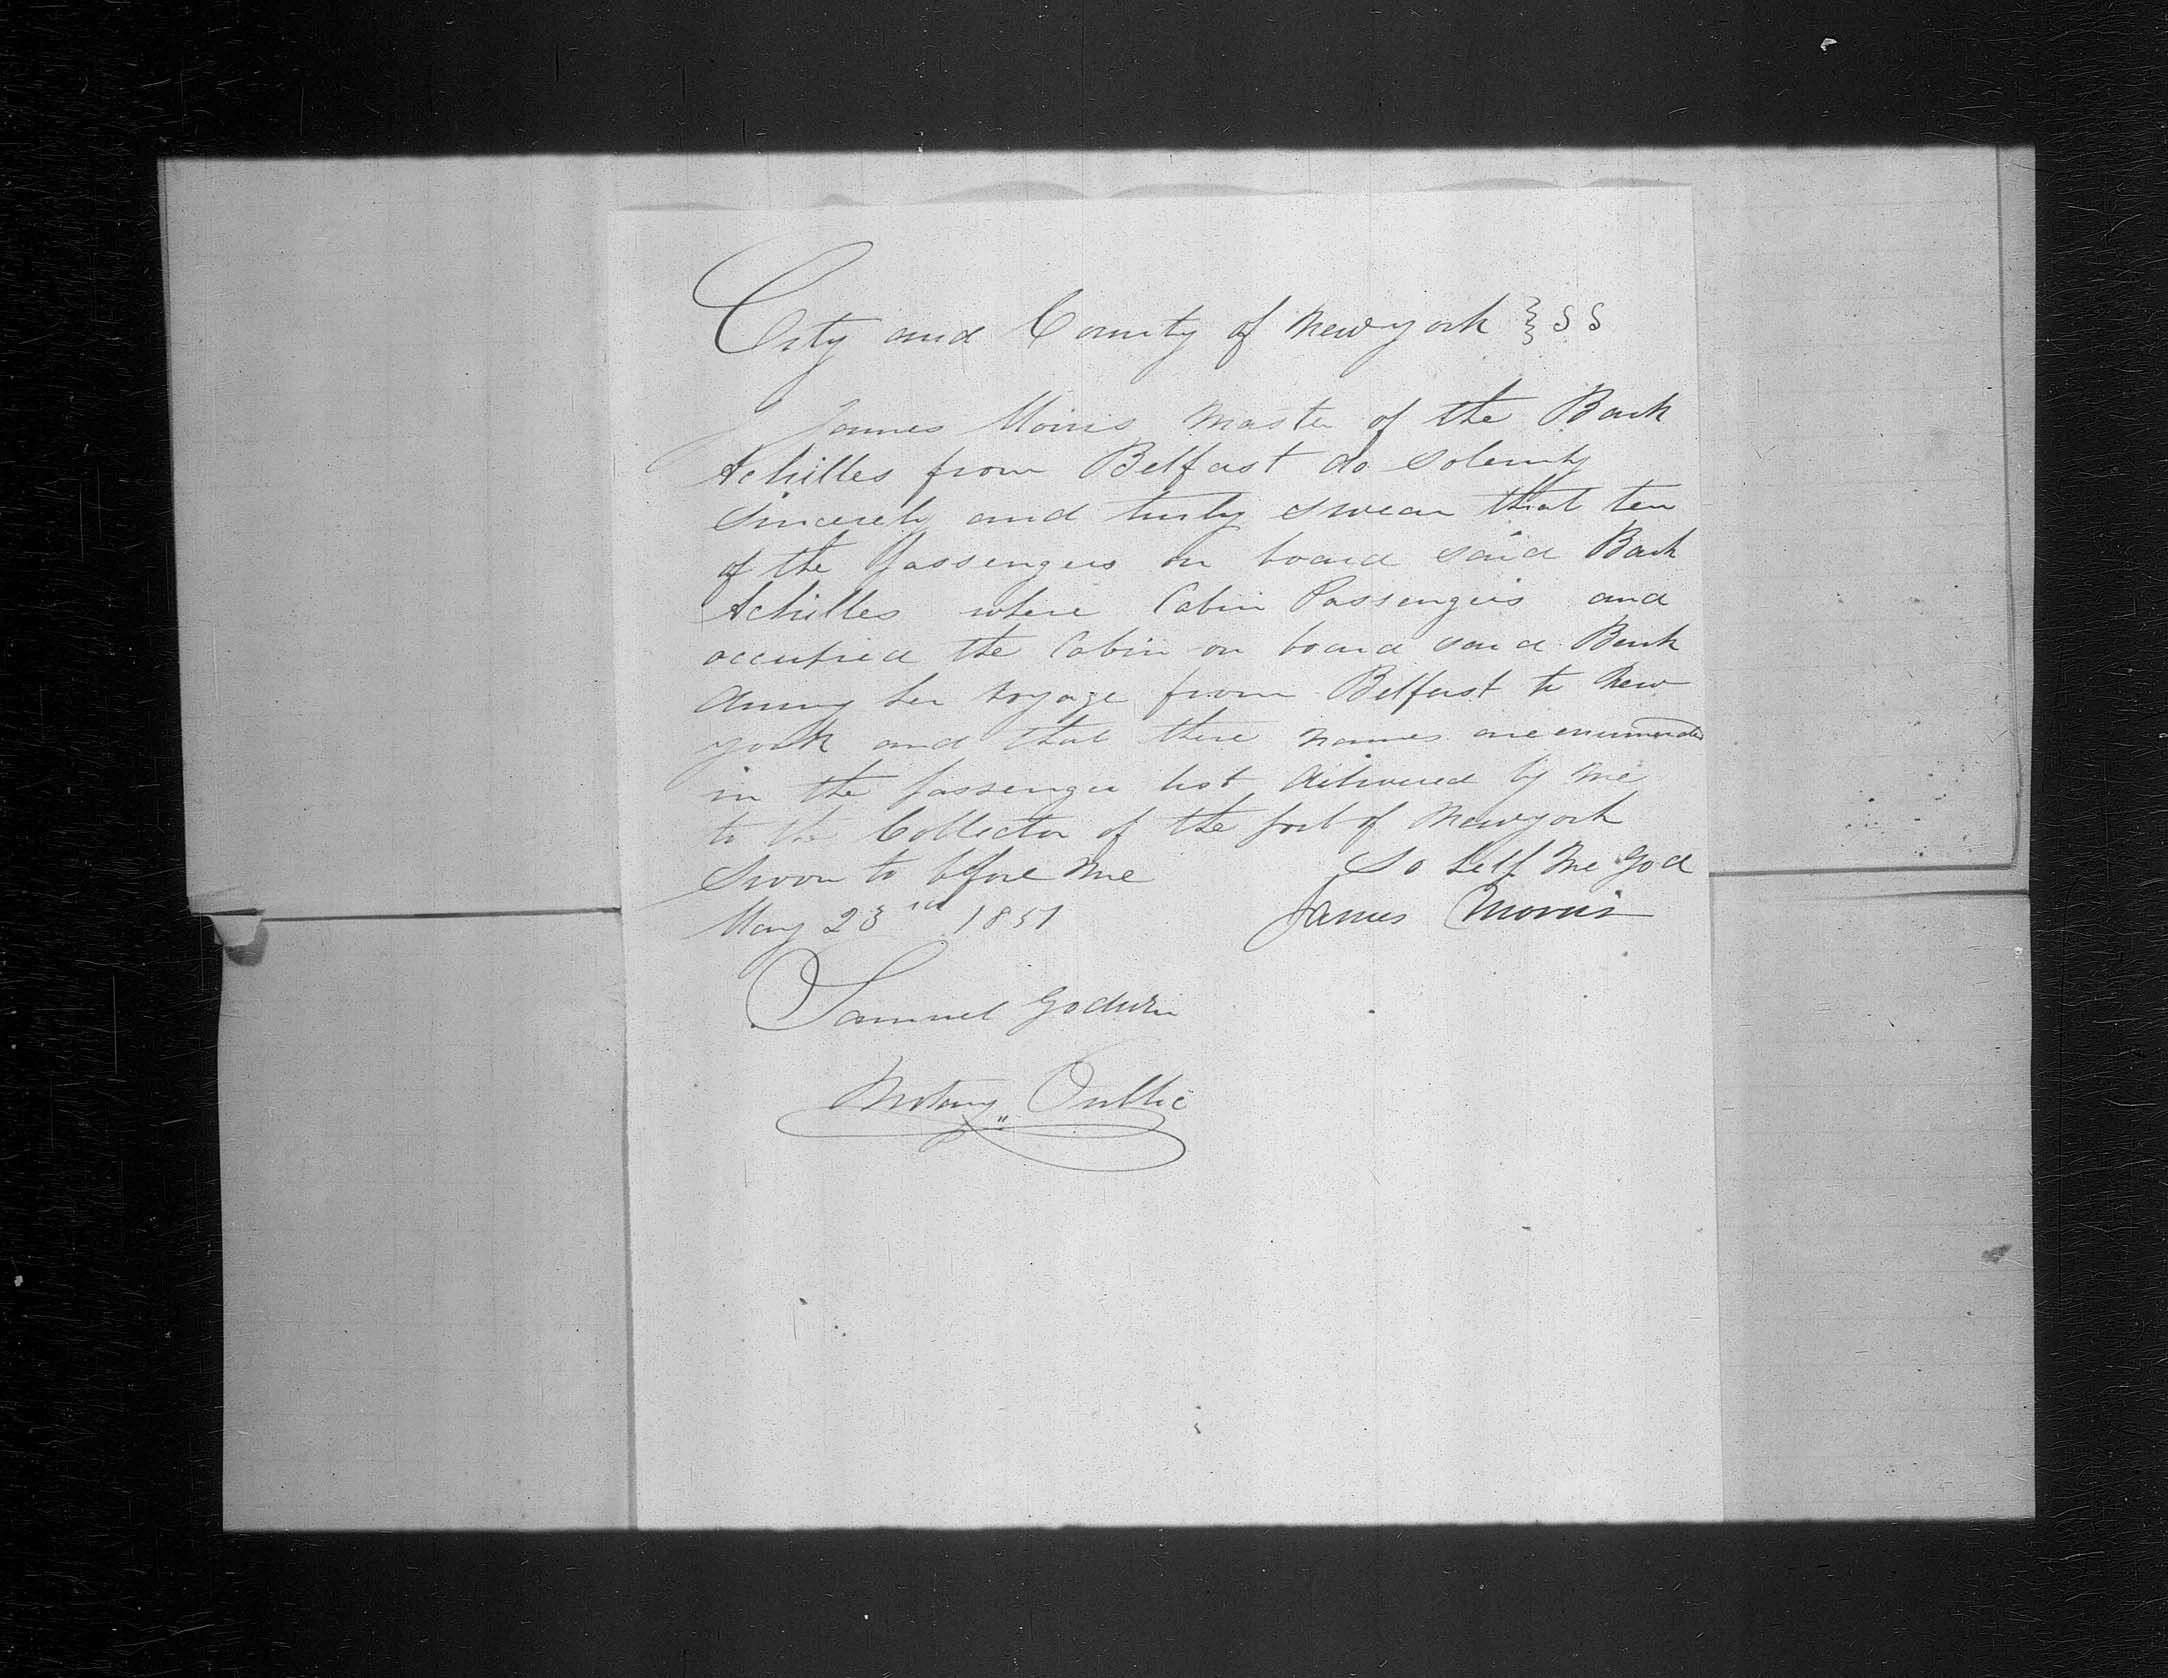 City and County of New york } S S
I James Morris Master of the Bark
Achilles from Belfast do solemnly
sincerely and truly swear that ten
of the passengers on board said Bark
Achilles where Cabin Passengers and
occupied the Cabin on board said Bark
during her voyage from Belfast to New
york and that there names are enumerated
in the passenger list delivered by me
to the Collector of the port of New york
Sworn to before me So help me God
May 23rd 1851 James Morris
Samuel Godwin
Notary Public